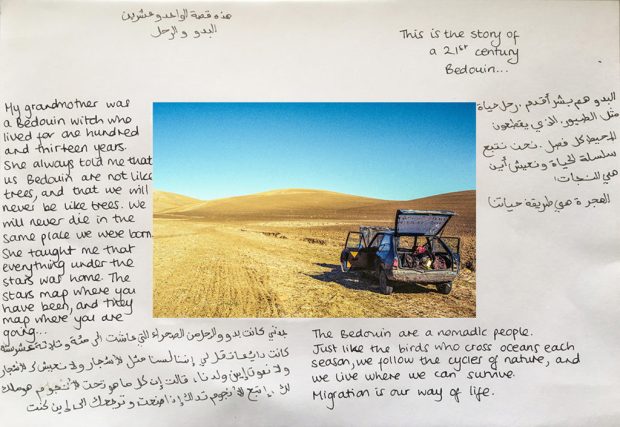 هذه قصة الواحد و عشرين
البدو و الرحل
This is the story of
a 21st century
Bedouin...
My grandmother was
a Bedouin witch who
lived for one hundred
and thirteen years.
She always told me that
us Bedouin are not like
trees, and that we will
never be like trees. We
will never die in the
same place we were born.
She taught me that
everything under the
stars was home. The
stars map where you
have been, and they
map where you are
going...
البدو هم بشر أقدم. رحل حياة
مثل الطيور. الذي يقطعون
المحيط كل فصل. نحن نتبع
سلسلة الحياة و نعيش أين
هي النجات!
الهجرة هي طريقة حياتنا
جدتي كانت بدو و الرحل من الصحراء التي عاشت الى مئة و ثلاثة عشر سنة
كانت دائما تقل لي إننا لسنا مثل الأشجار ولا نعيش كالأشجار
ولا نموت أين ولدنا. قالت إن كل ما هو تحت الأنجوم
The Bedouin are a nomadic people.
Just like the birds who cross oceans each
season, we follow the cycles of nature, and
we live where we can survive.
Migration is our way of life.